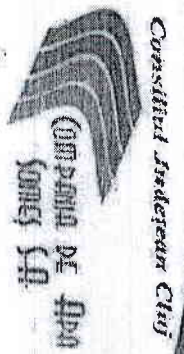 Consiliul Județean Cluj
Compania de Apă
Someș S.A.